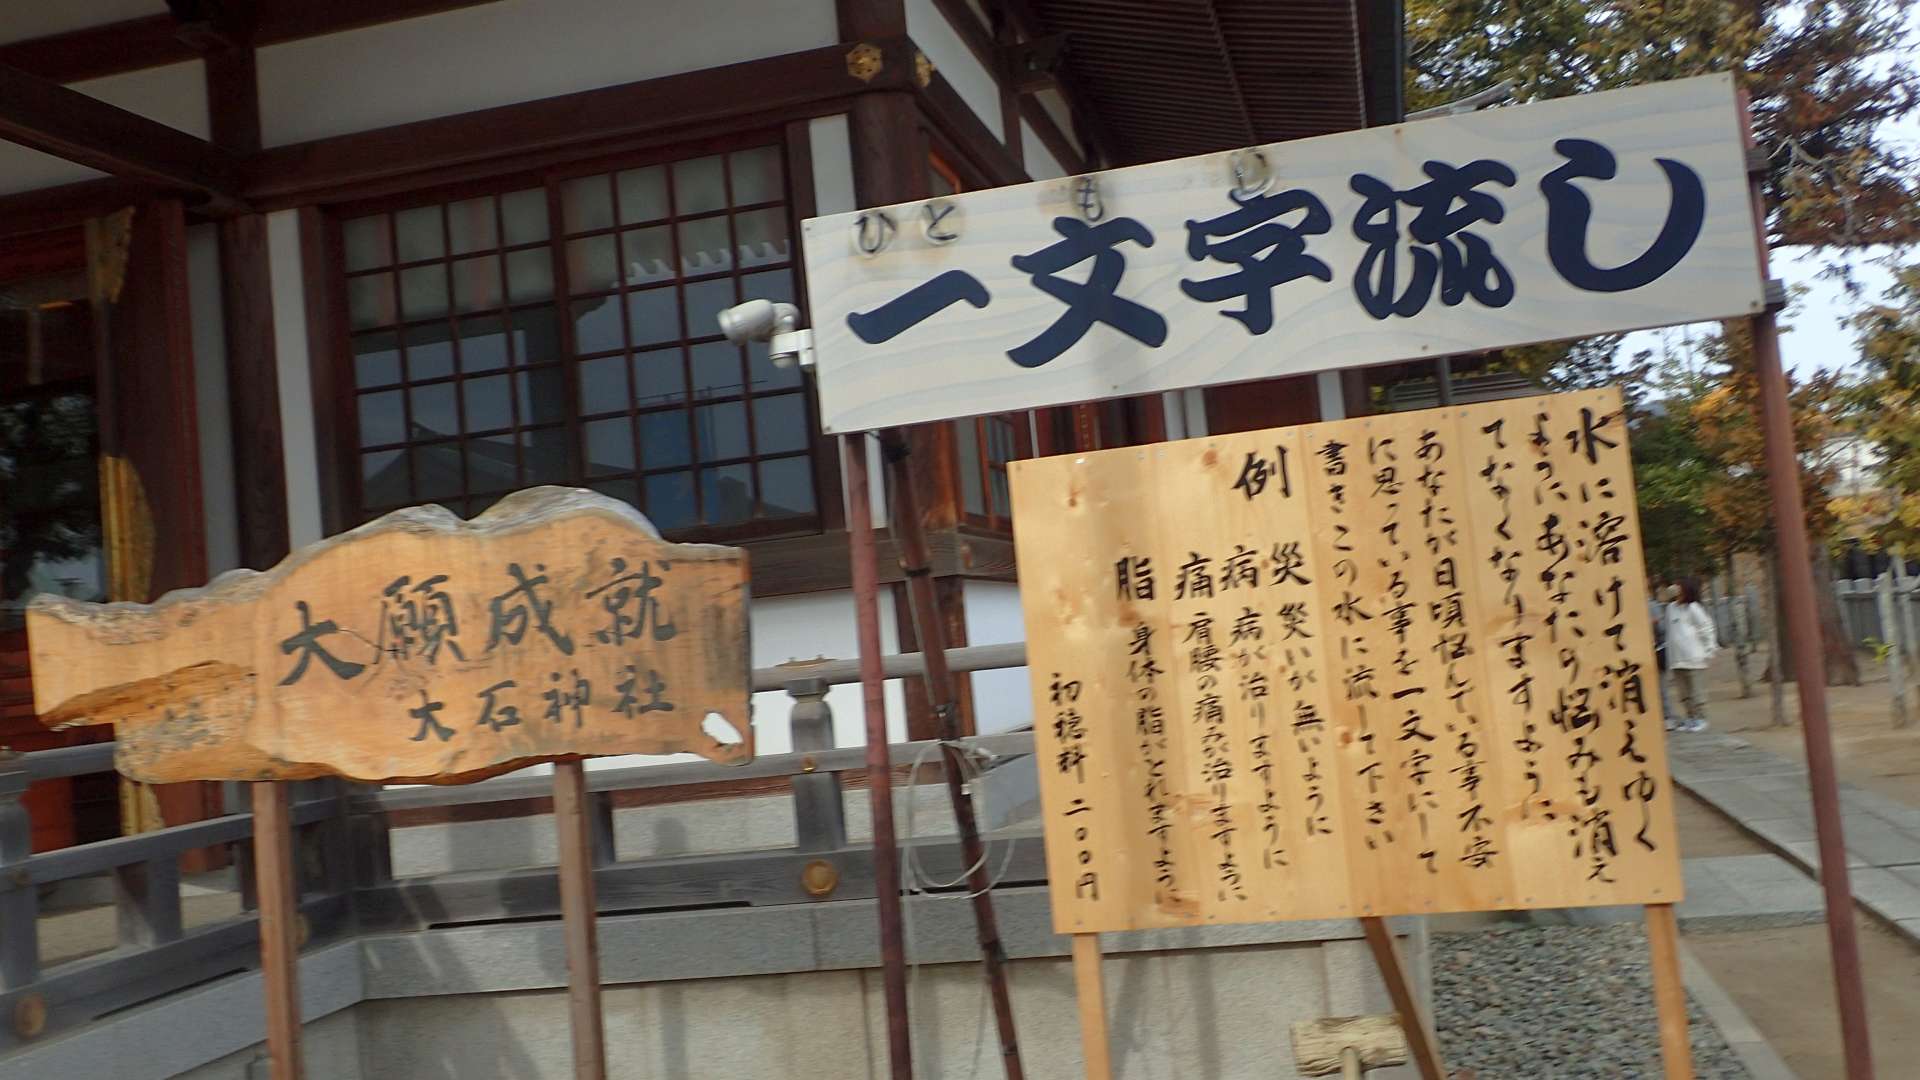 ひともじ
一文字流し
水に溶けて消えゆく
ようにあなたの悩みも消え
てなくなりますように
あなたが日頃悩んでいる事不安
に思っている事を一文字にして
書きこの水に流して下さい
例 災 災いが無いように
病 病が治りますように
痛 肩腰の痛みが治りますように
脂 身体の脂がとれますように
初穂料 二〇〇円
大願成就
大石神社